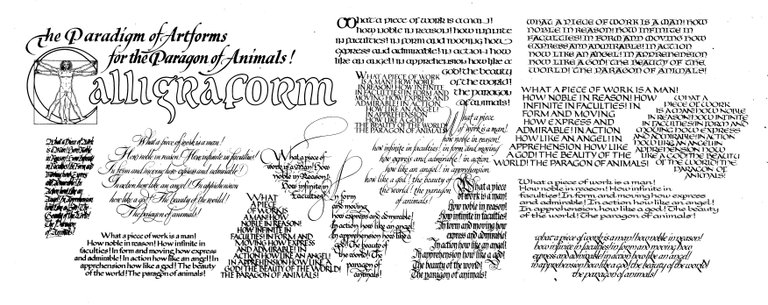 the Paradigm of Artforms
for the Paragon of Animals!
Calligraform
What a piece of work is a man!
how noble in reason! how infinite
in faculties! in form and moving how
express and admirable! in action how
like an angel! in apprehension how like a
god! the beauty
of the world!
the paragon
of animals!
WHAT A PIECE OF WORK
IS A MAN! HOW NOBLE
IN REASON! HOW INFINITE
IN FACULTIES! IN FORM AND
MOVING HOW EXPRESS AND
ADMIRABLE! IN ACTION
HOW LIKE AN ANGEL!
IN APPREHENSION
HOW LIKE A GOD!
THE BEAUTY OF THE WORLD!
THE PARAGON OF ANIMALS!
WHAT A PIECE OF WORK IS A MAN! HOW
NOBLE IN REASON! HOW INFINITE IN
FACULTIES! IN FORM AND MOVING HOW
EXPRESS AND ADMIRABLE! IN ACTION
HOW LIKE AN ANGEL! IN APPREHENSION
HOW LIKE A GOD! THE BEAUTY OF THE
WORLD! THE PARAGON OF ANIMALS!
WHAT A PIECE OF WORK IS A MAN!
HOW NOBLE IN REASON! HOW
INFINITE IN FACULTIES! IN
FORM AND MOVING
HOW EXPRESS AND
ADMIRABLE! IN ACTION
HOW LIKE AN ANGEL! IN
APPREHENSION HOW LIKE
A GOD! THE BEAUTY OF THE
WORLD! THE PARAGON OF ANIMALS!
WHAT A
PIECE OF WORK
IS A MAN! HOW NOBLE
IN REASON! HOW INFINITE
IN FACULTIES! IN FORM AND
MOVING HOW EXPRESS
AND ADMIRABLE! IN ACTION
HOW LIKE AN ANGEL! IN
APPREHENSION HOW
LIKE A GOD! THE BEAUTY
OF THE WORLD! THE
PARAGON OF
ANIMALS!
What a Piece of Work
What a piece of work is a man!
How noble in reason! How infinite in faculties!
In form and moving how express and admirable!
In action how like an angel! In apprehension
how like a god! The beauty of the world!
The paragon of animals!
What a piece of work is a man!
How noble in reason! How infinite in
faculties! In form and moving, how express and
admirable! In action how like an angel! In
apprehension how like a god! The beauty
of the world! The paragon of animals!
What a piece of
work is a man! How
noble in Reason!
How infinite in
Faculties!
in form
and moving how
express and admirable!
In action how like an angel!
In apprehension how like
a god! the Beauty
of the world! The
Paragon of
animals!
WHAT
A PIECE
OF WORK IS
A MAN! HOW
NOBLE IN REASON!
HOW INFINITE IN
FACULTIES! IN FORM AND
MOVING HOW EXPRESS
AND ADMIRABLE! IN
ACTION HOW LIKE AN ANGEL!
IN APPREHENSION HOW LIKE A
GOD! THE BEAUTY OF THE WORLD!
THE PARAGON OF ANIMALS!
What a piece
of work is a man!
how noble in reason!
how infinite in faculties! in form and moving
how express and admirable! in action
how like an angel! in apprehension
how like a god! the beauty of
the world! the paragon
of animals!
What a piece
of work is a man!
How noble in reason!
How infinite in faculties!
In form and moving
how express and admirable!
In action how like an angel!
In apprehension
how like a god!
The beauty of the world!
The paragon of animals!
What a piece of work is a man!
How noble in reason! How infinite in
faculties! In form and moving how express
and admirable! In action how like an angel!
In apprehension how like a god! The beauty
of the world! The paragon of animals!
what a piece of work is a man! how noble in reason!
how infinite in faculties! in form and moving how
express and admirable! in action how like an angel!
in apprehension how like a god! the beauty of the world!
the paragon of animals!